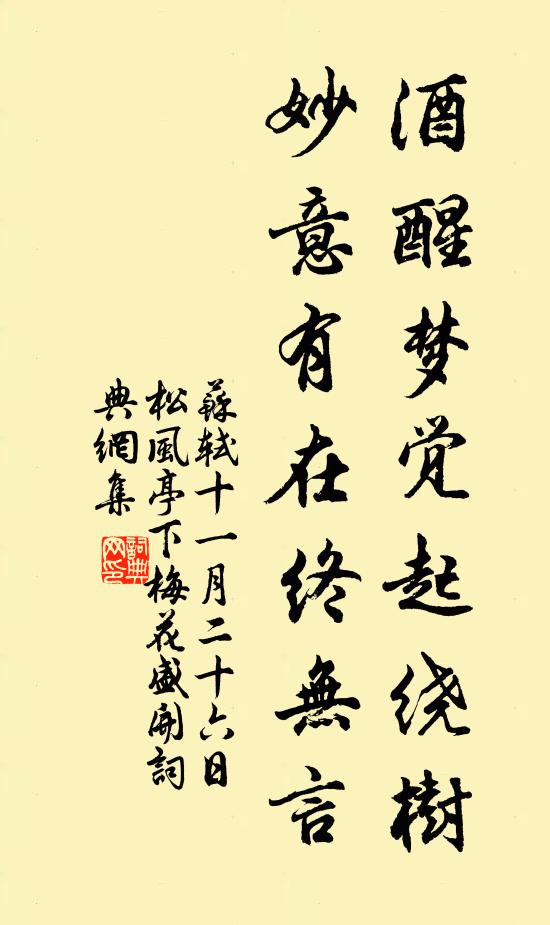 酒醒梦觉起绕樹
妙意有在终無言
蘇軾十一月二十六日
松風亭下梅花盛開詞
典網集
詞典网印